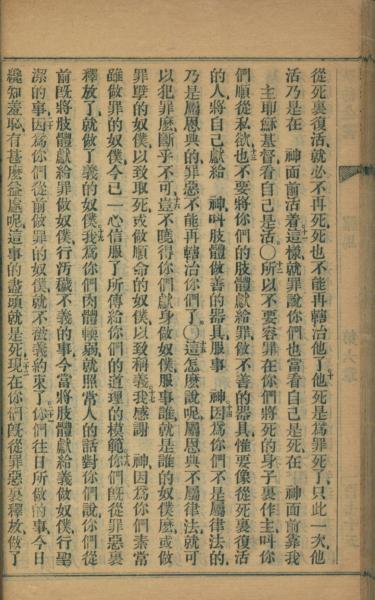 從死裏復活、就必不再死、死也不能再轄治他了、他死是爲罪死了、只此一次、他
活乃是在　神面前活着、這樣、就罪說、你們也當看自己是死、在　神面前、靠我
主耶穌基督、看自己是活、○所以不要容罪在你們將死的身子裏作主、叫你
們順從私欲、也不要將你們的肢體獻給罪、做不善的器具、惟要像從死裏復活
的人、將自己獻給　神、叫肢體做善的器具、服事　神、因爲你們不是屬律法的、
乃是屬恩典的、罪惡不能再轄治你們了、○這怎麽說呢、屬恩典不屬律法、就可
以犯罪麽、斷乎不可、豈不曉得你們獻身做奴僕、服事誰、就是誰的奴僕麽、或做
罪孽的奴僕、以致取死、或做順命的奴僕、以致稱義、我感謝　神、因爲你們素常
雖做罪的奴僕、今已一心信服了所傳給你們的道理的模範、你們旣從罪惡裏
釋放了、就做了義的奴僕、我爲你們肉體輭弱、就照常人的話對你們說、你們從
前旣將肢體獻給罪做奴僕、行汚穢不義的事、今當將肢體獻給義做奴僕、行聖
潔的事、因爲你們從前做罪的奴僕、就不被義約束了、你們往日所做的事、今日
纔知羞恥、有甚麽益處呢、這事的盡頭就是死、現在你們旣從罪惡裏釋放、做了